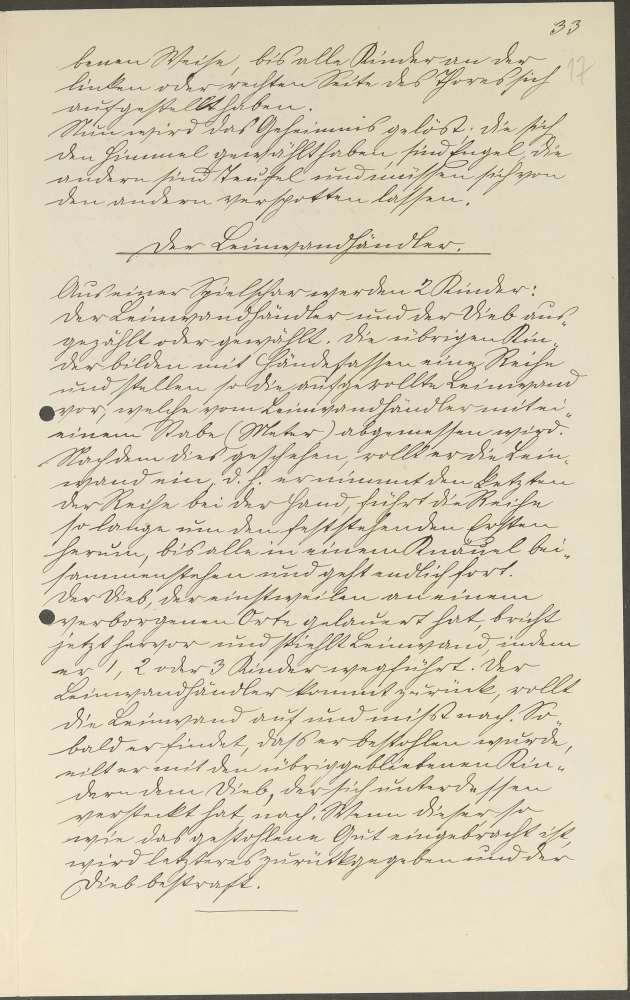 33
17
benen Weise, bis alle Kinder an der
linken oder rechten Seite des Thores sich
aufgestellt haben.
Nun wird das Geheimnis gelöst; die sich
den Himmel gewählt haben, sind Engel, die
andern sind Teufel und müssen sich von
den andern verspotten lassen.
Der Leinwandhändler.
Aus einer Spielschar werden 2 Kinder:
der Leinwandhändler und der Dieb aus-
gezählt oder gewählt. Die übrigen Kin-
der bilden mit Händefassen eine Reihe
und stellen so die aufgerollte Leinwand
vor, welche vom Leinwandhändler mit ei-
einem Stabe (Meter) abgemessen wird.
Nachdem dies geschehen, rollt er die Lein-
wand ein, d. h. er nimmt den Letzten
der Reihe bei der Hand, führt die Reihe
so lange um den feststehenden Ersten
herum, bis alle in einem Knäuel bei-
sammenstehen und geht endlich fort.
Der Dieb, der einstweilen an einem
verborgenen Orte gelauert hat, bricht
jetzt hervor und stiehlt Leinwand, indem
er 1, 2 oder 3 Kinder wegführt. Der
Leinwandhändler kommt zurück, rollt
die Leinwand auf und mißt nach. So-
bald er findet, daß er bestohlen wurde,
eilt er mit den übriggebliebenen Kin-
dern dem Dieb, der sich unterdessen
versteckt hat, nach. Wenn dieser so
wie das gestohlene Gut eingebracht ist,
wird letzteres zurückgegeben und der
Dieb bestraft.